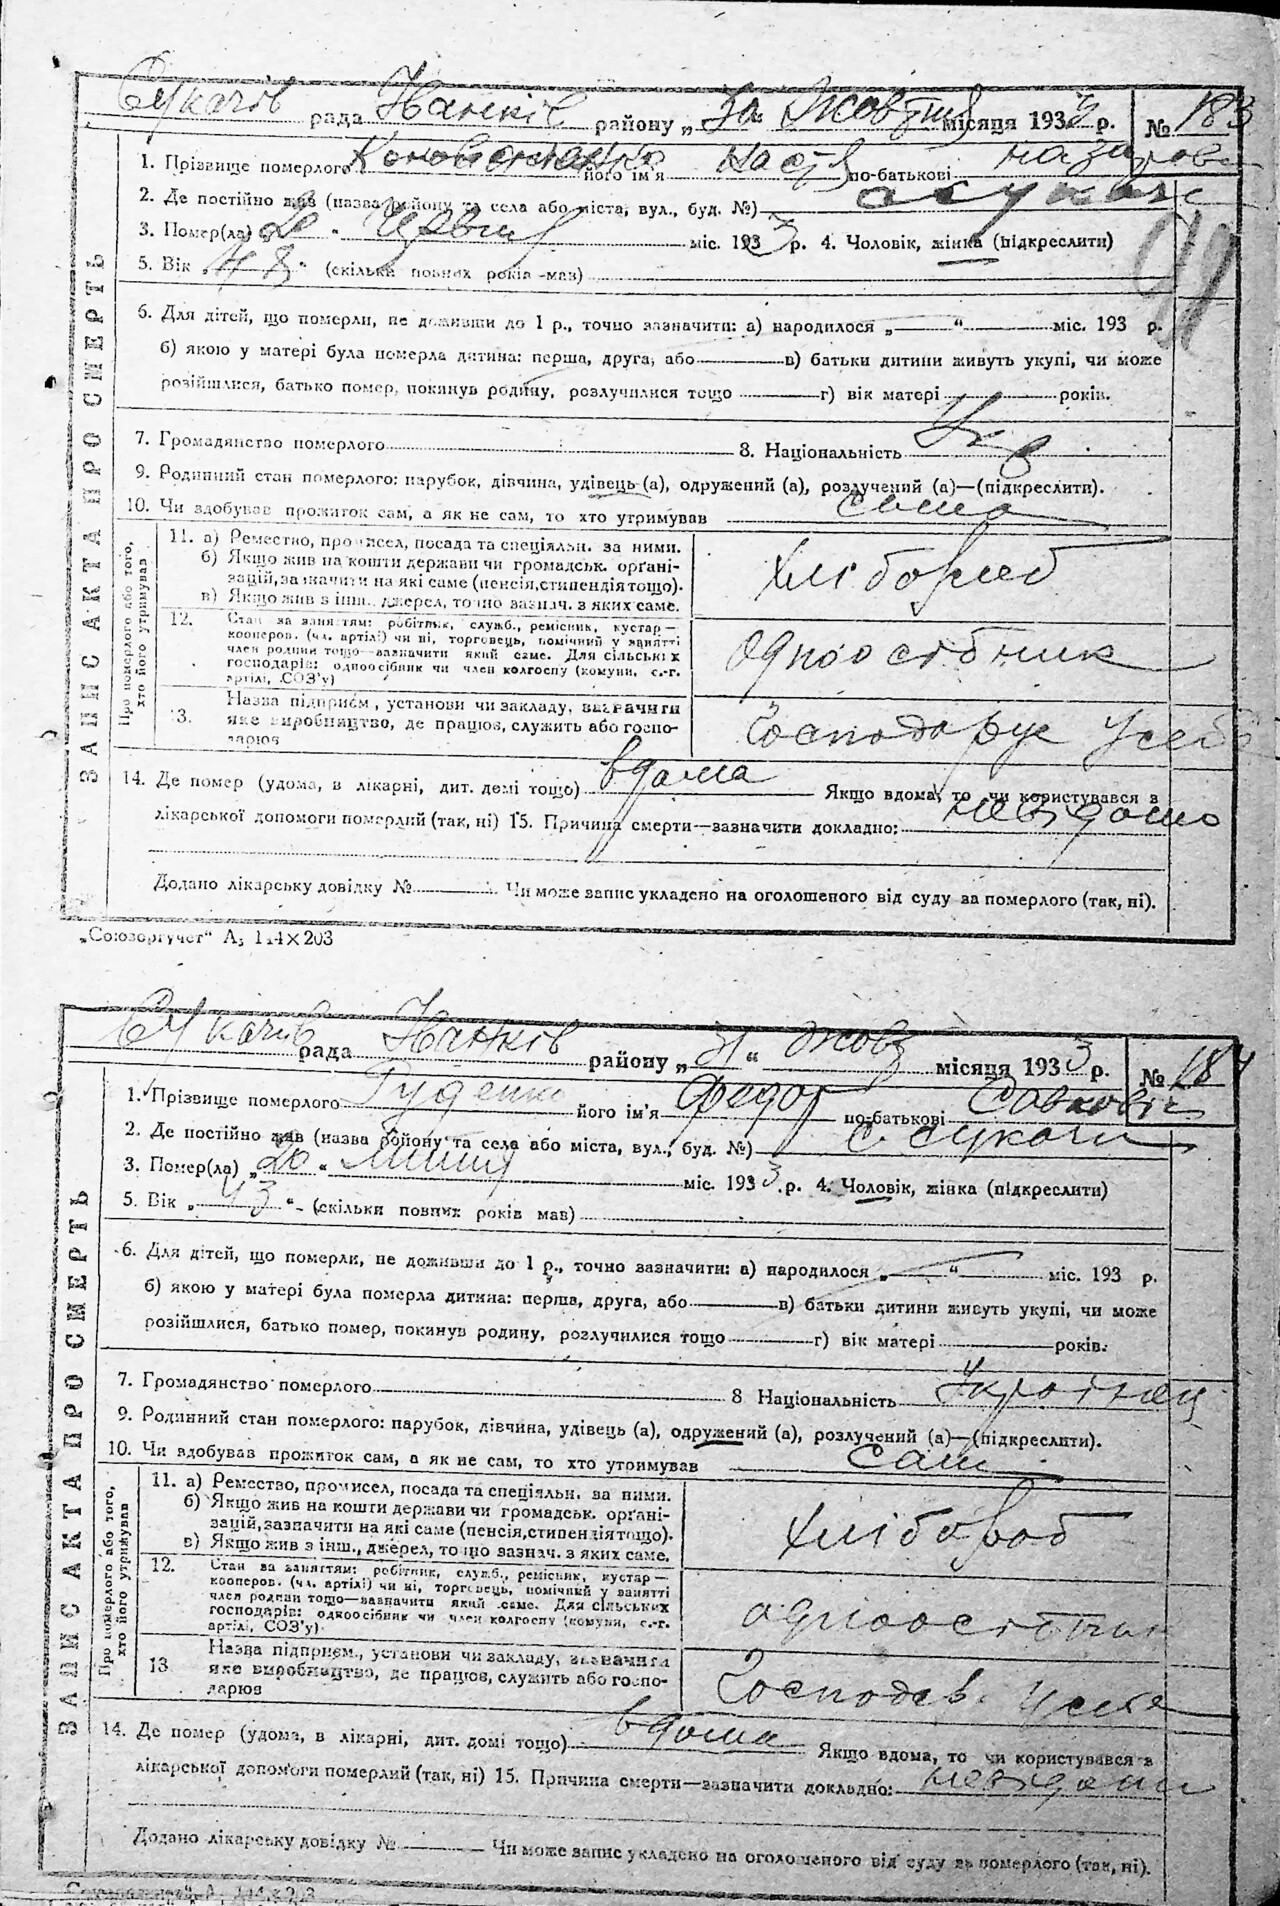 Сукачів рада Іванків району „ 30 “ Жовтня місяця 1933 р. № 183
1. Прізвище померлого його ім'я Настя по-батькові
2. Де постійно жив (назва району та села або міста, вул., буд. №)
3. Помер(ла) „20“ Червня міс. 1933 р. 4. Чоловік, жінка (підкреслити)
5. Вік „ “ (скільки повних років мав)
6. Для дітей, що померли, не доживши до 1 р., точно зазначити: а) народилося „ “ міс. 193 р.
б) якою у матері була померла дитина: перша, друга, або в) батьки дитини живуть укупі, чи може
розійшлися, батько помер, покинув родину, розлучилися тощо г) вік матері років.
7. Громадянство померлого 8. Національність Укр
9. Родинний стан померлого: парубок, дівчина, удівець (а), одружений (а), розлучений (а)—(підкреслити).
10. Чи здобував прожиток сам, а як не сам, то хто утримував сама
ЗАПИС АКТА ПРО СМЕРТЬ
Про померлого або того, хто його утримував
11. а) Ремество, промисел, посада та спеціяльн. за ними.
б) Якщо жив на кошти держави чи громадськ. орґані-
зацій, зазначити на які саме (пенсія, стипендія тощо).
в) Якщо жив з інш., джерел, точно зазнач. з яких саме.
хлібороб
12. Стан за заняттям: робітник, служб., ремісник, кустар—
кооперов. (чл. артілі) чи ні, торговець, помічний у занятті
член родини тощо—зазначити який саме. Для сільських
господарів: одноосібник чи член колгоспу (комуни, с.-г.
артілі, СОЗ'у)
одноосібник
13. Назва підприєм., установи чи закладу, визначити
яке виробництво, де працює, служить або госпо-
дарює
Господарує у себе
14. Де помер (удома, в лікарні, дит. домі тощо) вдома Якщо вдома, то чи користувався з
лікарської допомоги померлий (так, ні) 15. Причина смерти—зазначити докладно: невідомо
Додано лікарську довідку № Чи може запис укладено на оголошеного від суду за померлого (так, ні).
„Союзоргучет“ А₅ 144×203
Сукачів рада Іванків району „31“ Жовт місяця 1933 р. № 184
1. Прізвище померлого Руденко його ім'я Федор по-батькові Савкович
2. Де постійно жив (назва району та села або міста, вул., буд. №) с. Сукачі
3. Помер(ла) „20“ липня міс. 1933 р. 4. Чоловік, жінка (підкреслити)
5. Вік „43“ (скільки повних років мав)
6. Для дітей, що померли, не доживши до 1 р., точно зазначити: а) народилося „ “ міс. 193 р.
б) якою у матері була померла дитина: перша, друга, або в) батьки дитини живуть укупі, чи може
розійшлися, батько помер, покинув родину, розлучилися тощо г) вік матері років.
7. Громадянство померлого 8 Національність Українец
9. Родинний стан померлого: парубок, дівчина, удівець (а), одружений (а), розлучений (а)—(підкреслити).
10. Чи здобував прожиток сам, а як не сам, то хто утримував сам
ЗАПИС АКТА ПРО СМЕРТЬ
Про померлого або того, хто його утримував
11. а) Ремество, промисел, посада та спеціяльн. за ними.
б) Якщо жив на кошти держави чи громадськ. орґані-
зацій, зазначити на які саме (пенсія, стипендія тощо).
в) Якщо жив з інш., джерел, точно зазнач. з яких саме.
хлібороб
12. Стан за заняттям: робітник, служб., ремісник, кустар—
кооперов. (чл. артілі) чи ні, торговець, помічний у занятті
член родини тощо—зазначити який саме. Для сільських
господарів: одноосібник чи член колгоспу (комуни, с.-г.
артілі, СОЗ'у)
одноосібник
13 Назва підприєм., установи чи закладу, зазначити
яке виробництво, де працює, служить або госпо-
дарює
Господ. в. у себе
14. Де помер (удома, в лікарні, дит. домі тощо) вдома Якщо вдома, то чи користувався з
лікарської допомоги померлий (так, ні) 15. Причина смерти—зазначити докладно: невідомо
Додано лікарську довідку № Чи може запис укладено на оголошеного від суду за померлого (так, ні).